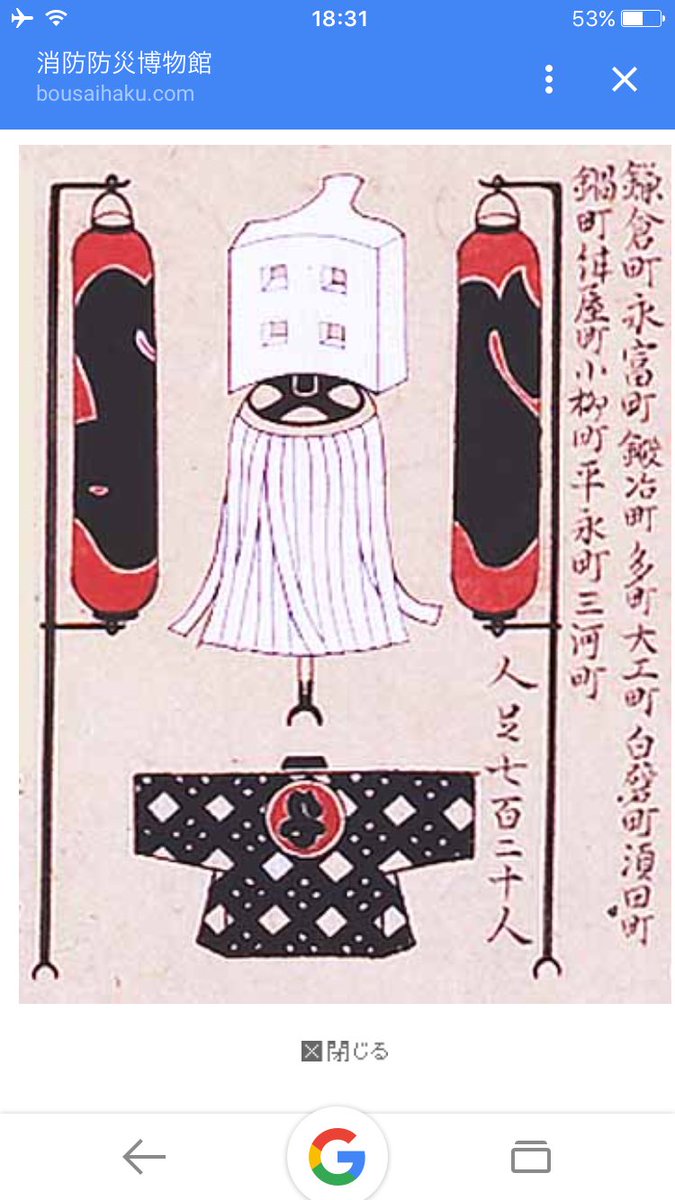 18:31
53%
消防防災博物館
bousaihaku.com
鎌倉町永富町鍛冶町多町大工町白壁町須田町
鍋町鍋屋町小柳町平永町三河町
人足七百二十人
閉じる